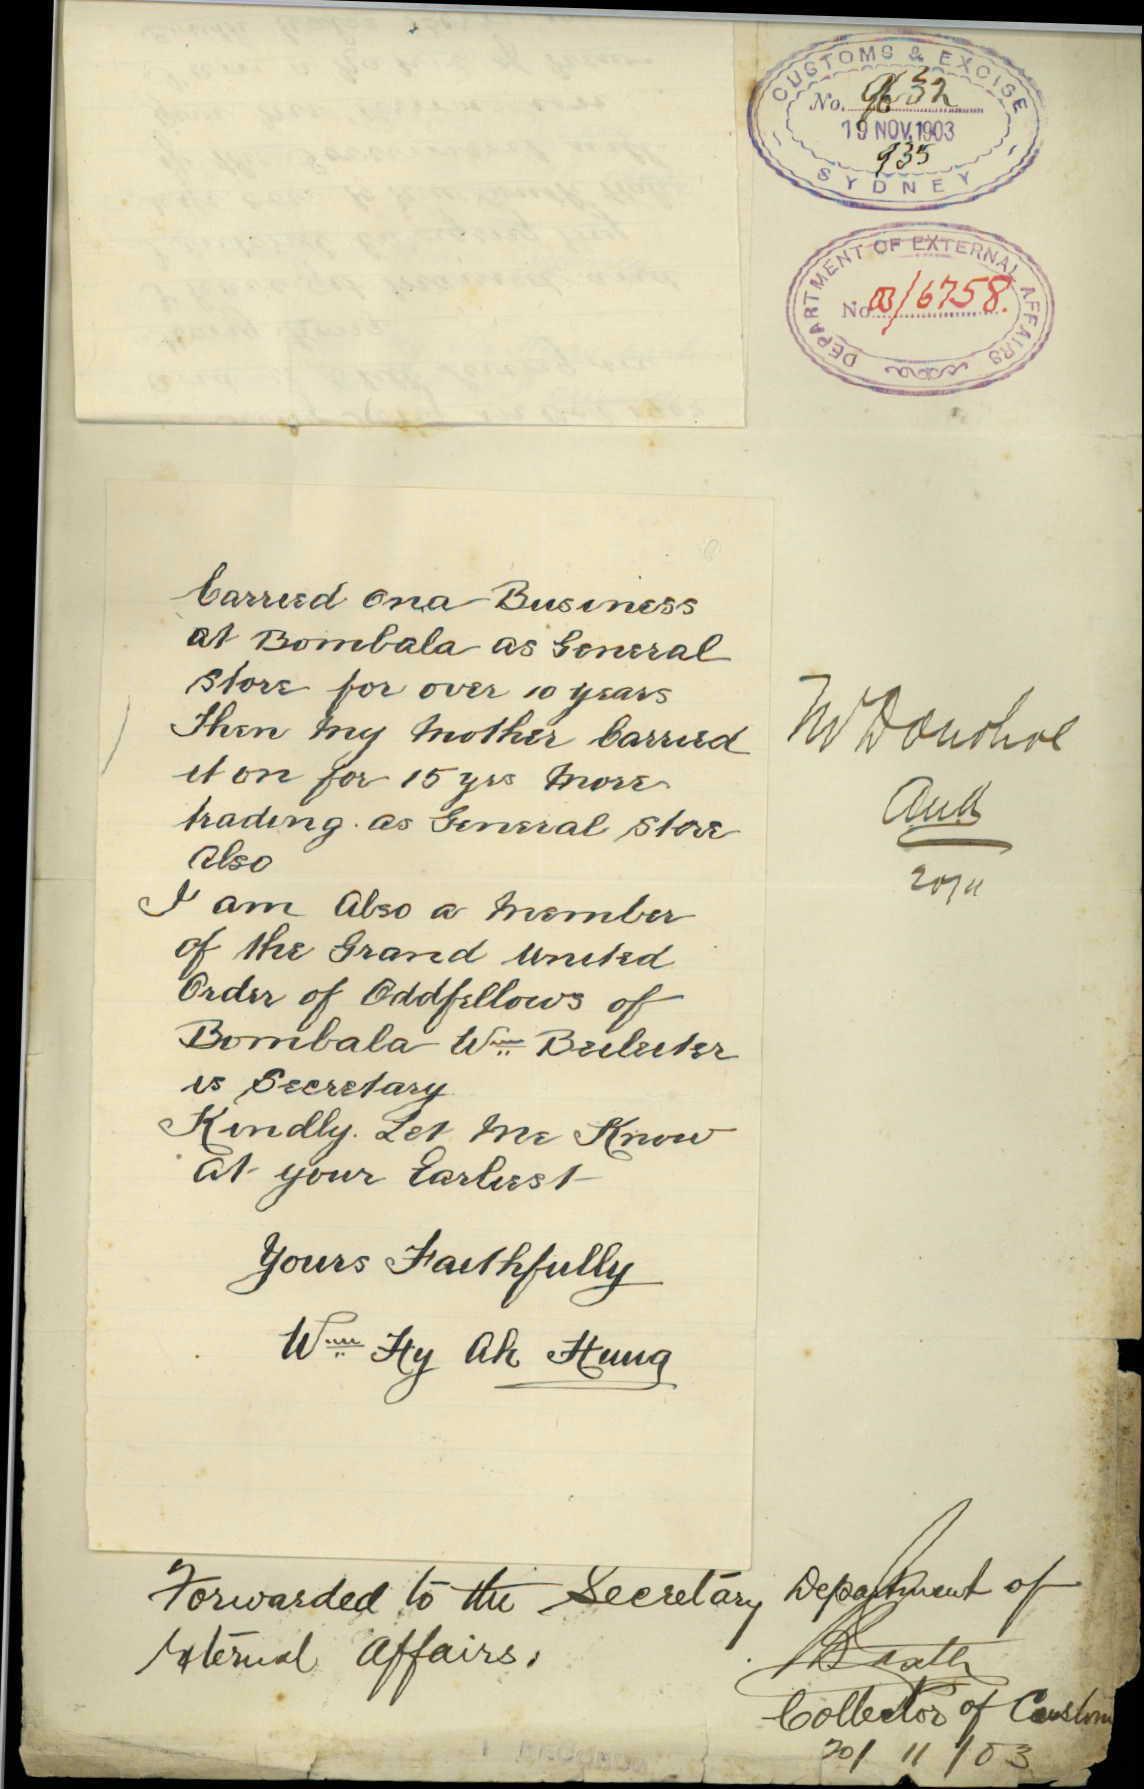 CUSTOMS & EXCISE
No. 9632
19 NOV. 1903
935
SYDNEY
DEPARTMENT OF EXTERNAL AFFAIRS
No 03/6758.
Carried on a Business
at Bombala as General
Store for over 10 years
Then My Mother Carried
it on for 15 yrs More
trading. as General Store
Also
I am Also a Member
of the Grand United
Order of Oddfellows of
Bombala Wm
is Secretary
Kindly. Let Me Know
At your Earliest
Yours Faithfully
Wm Hy Ah Hung
Mr Donohoe
20/11
Forwarded to the Secretary Department of
External Affairs.
Collector of Customs
20/11/03